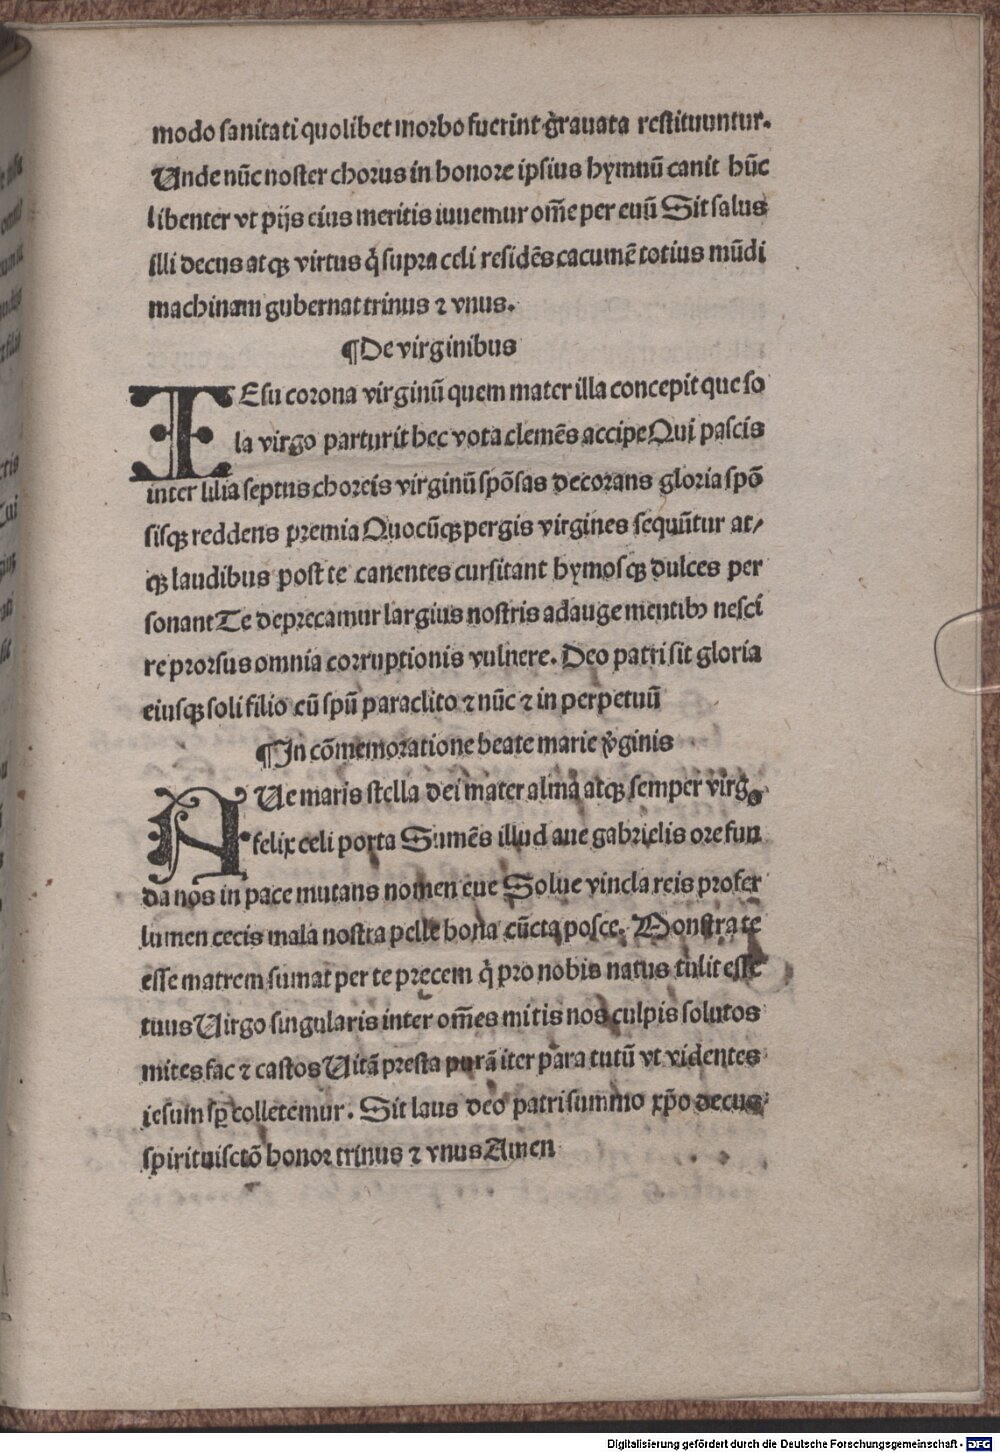 modo sanitati quolibet morbo fuerint g̾rauata restituuntur.
Unde nūc noster chorus in honore ipsius hymnū canit hūc
libenter vt pijs eius meritis iuuemur om̄e per euū Sit salus
illi decus atqꝫ virtus q̇ supra celi residēs cacumē totius mūdi
machinam gubernat trinus ⁊ vnus.
¶De virginibus
IEsu corona virginū quem mater illa concepit que so
la virgo parturit hec vota clemēs accipe Qui pascis
inter lilia septus choreis virginū spōsas decorans gloria spō
sisqꝫ reddens premia Quocūqꝫ pergis virgines sequūtur at/
qꝫ laudibus post te canentes cursitant hymosqꝫ dulces per
sonant Te deprecamur largius nostris adauge mentibꝫ nesci
re prorsus omnia corruptionis vulnere. Deo patri sit gloria
eiusqꝫ soli filio cū spū paraclito ⁊ nūc ⁊ in perpetuū
¶In cōmemoratione beate marie v̾ginis
AUe maris stella dei mater alma atqꝫ semper virgo
felix celi porta Sumēs illud aue gabrielis ore fun
da nos in pace mutans nomen eue Solue vincla reis profer
lumen cecis mala nostra pelle bona cūcta posce. Monstra te
esse matrem sumat per te precem q̇ pro nobis natus tulit esse
tuus Uirgo singularis inter om̄es mitis nos culpis solutos
mites fac ⁊ castos Uitā presta purā iter para tutū vt videntes
iesum sꝑ colletemur. Sit laus deo patri summo xp̄o decus
spiritui sctō honor trinus ⁊ vnus Amen
Digitalisierung gefördert durch die Deutsche Forschungsgemeinschaft - DFG